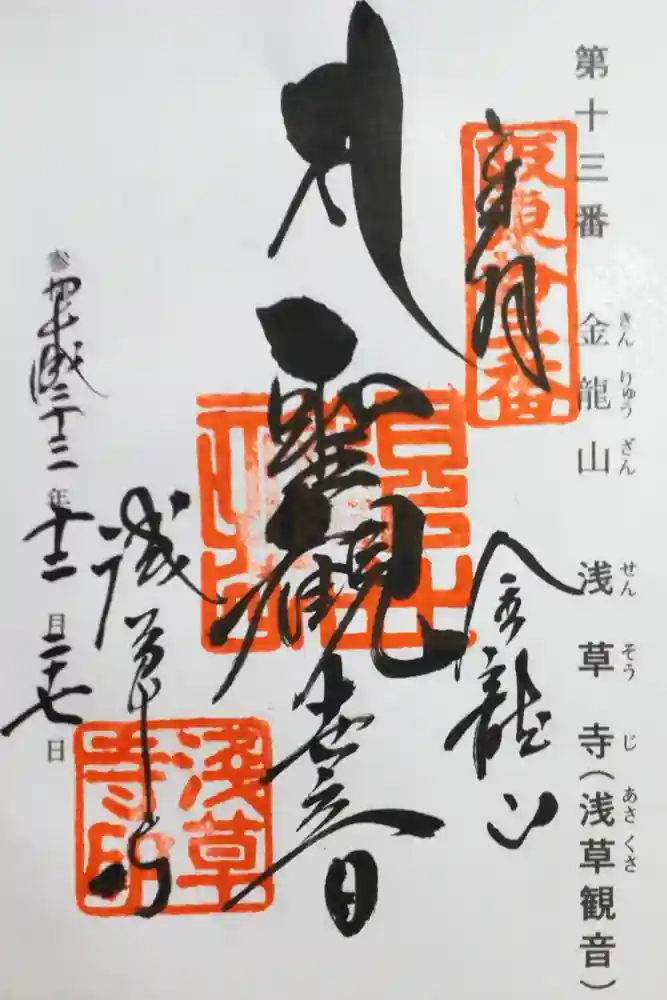 第十三番 金龍山 浅草寺(浅草観音)
きん りゅう ざん せん そう じ あさ くさ
坂東拾三番
奉拝
金龍山
聖観世音
浅草寺
淺草寺印
平成二十三年十二月二十七日